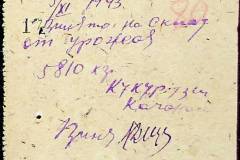 /XI 1943.
20
17
Взято на склад
от урожая
5810 кг.
Кукурузы
Качаны